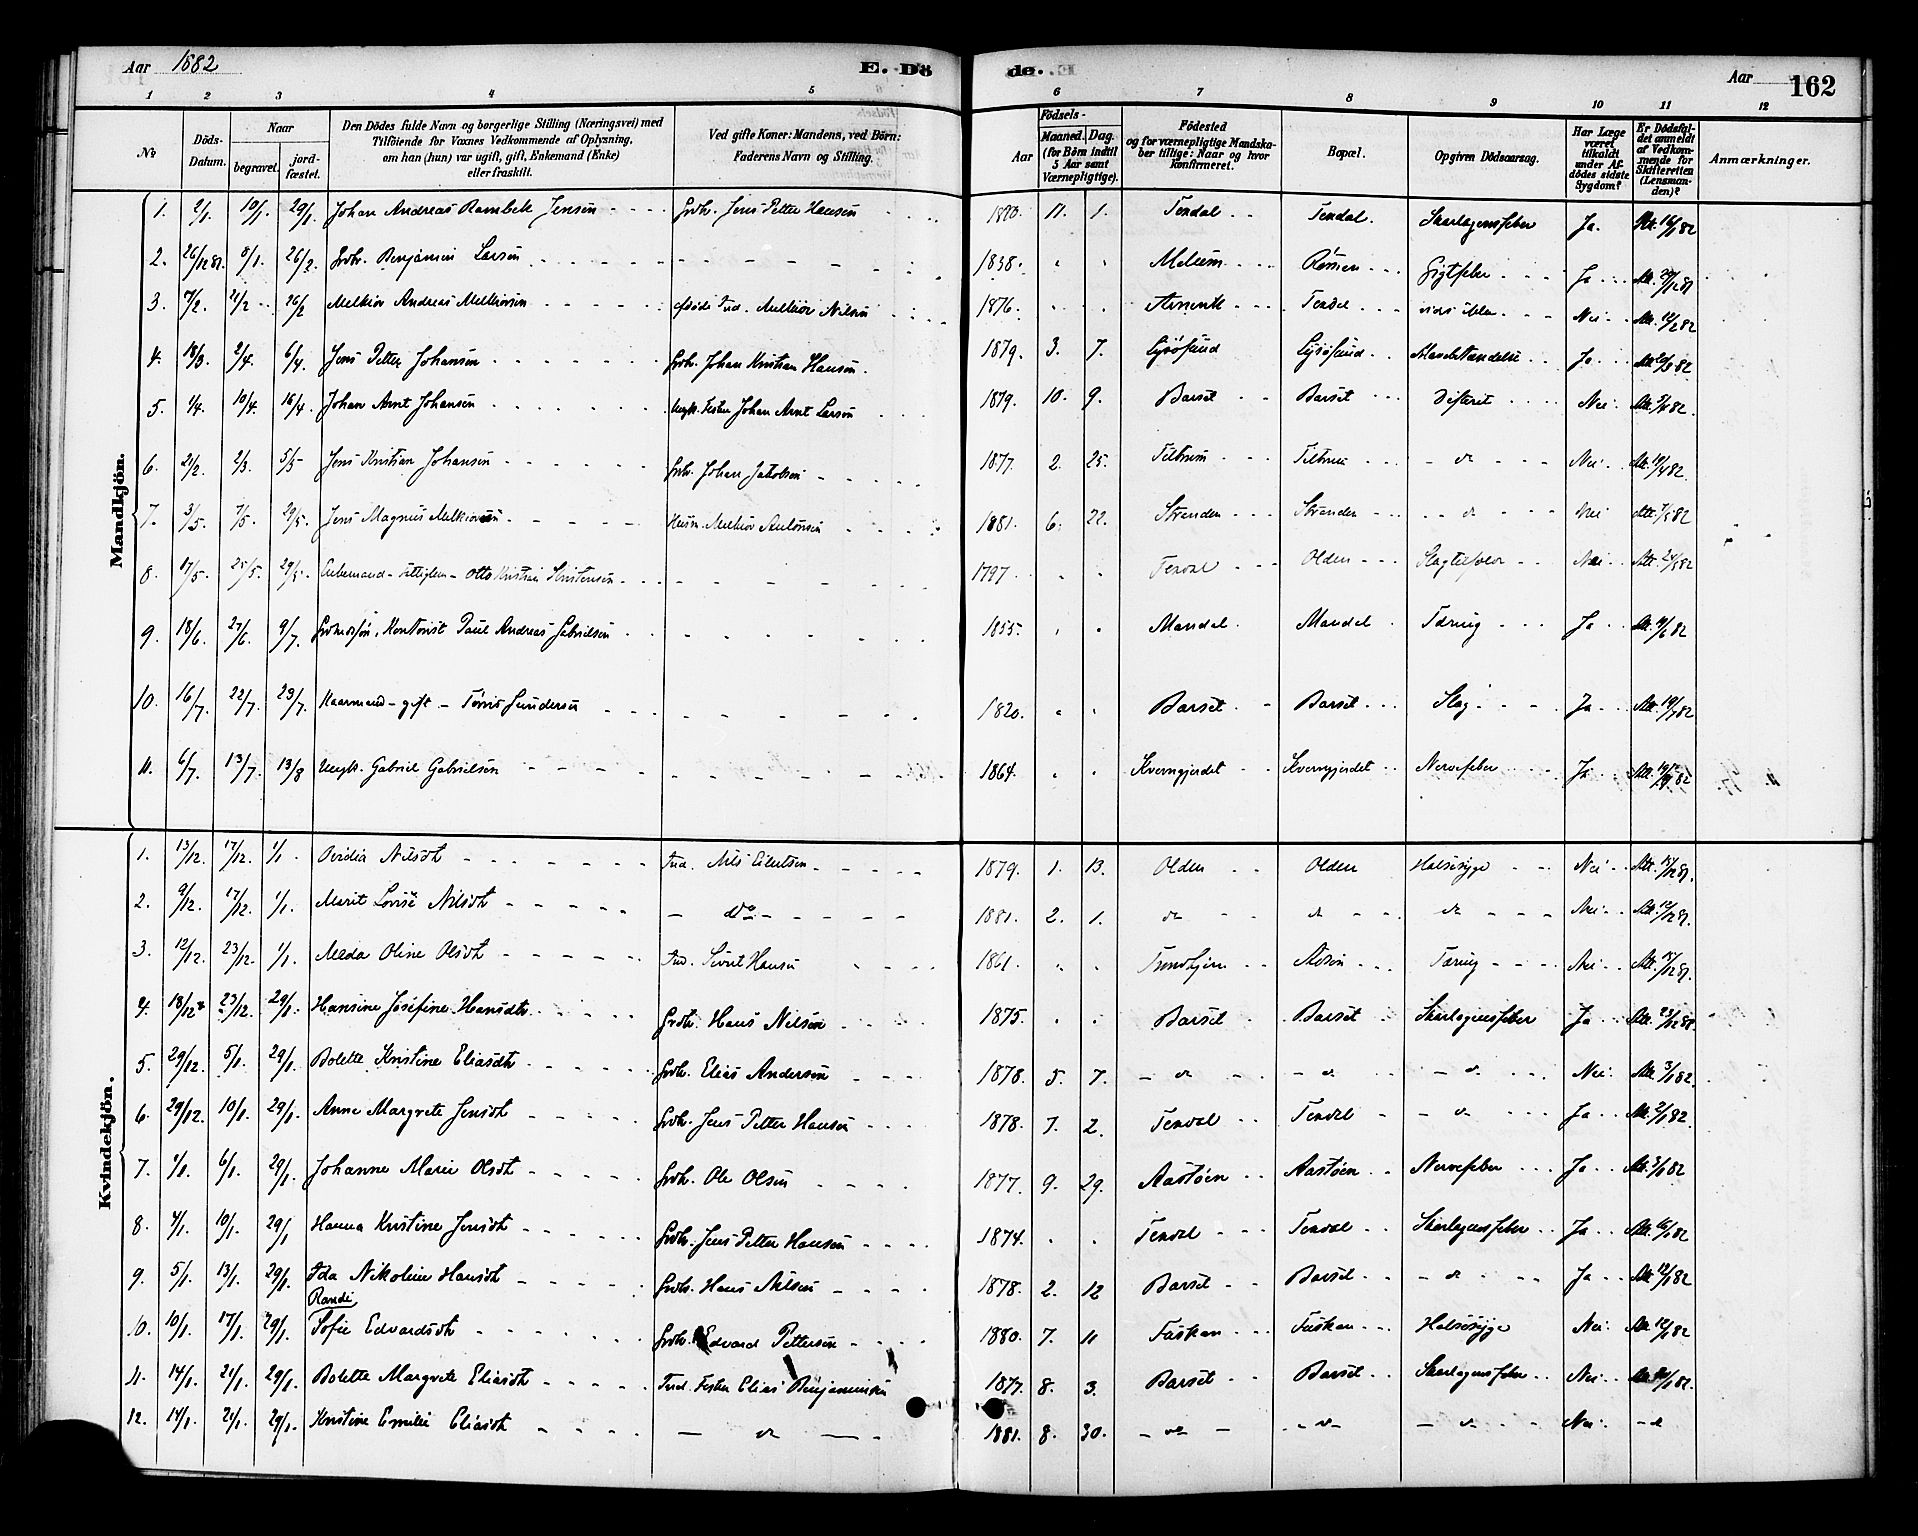 Aar 1882 E. Dö de. Aar 162
1 2 3 4 5 6 7 8 9 10 11 12
№ Döds-Datum. Naar begravet. jordfæstet. Den Dödes fulde Navn og borgerlige Stilling (Næringsvei) med Tilföiende for Voxnes Vedkommende af Oplysning, om han (hun) var ugift, gift, Enkemand (Enke) eller fraskilt. Ved gifte Koner: Mandens, ved Börn: Faderens Navn og Stilling. Födsels- Aar Maaned. Dag. (for Börn indtil 5 Aar samt Værnepligtige). Födested og for værnepligtige Mandskaber tillige: Naar og hvor konfirmeret. Bopæl. Opgiven Dödsaarsag. Har Læge været tilkaldt under Afdödes sidste Sygdom? Er Dödsfaldet anmeldt af Vedkommende for Skifteretten (Lensmanden)? Anmærkninger.
Mandkjön.
1. 2/1 10/1 29/1 Johan Andreas Rambek Jensen Grdbr. Jens Petter Hansen 11. 1. Tendal Tendal. Skarlagensfeber Ja. Att. 16/1 82
2. 26/12 81. 8/1. 26/2. Grdbr. Benjamin Larsen 1838. Melum Gigtfeber Ja
3. 7/2. 21/2 26/2 Melkior Andreas Melkiorsen Melkior Nilsen 1876. Tendal Nei Att. 12/2 82
4. 18/3. 2/4. 6/4. Jens Petter Johansen Grdbr. Johan Kristian Hansen. 1879. 3. 7. Lysøsund Lysøsund Ja
5. 1/4. 10/4. 16/4. Johan Arnt Johansen Johan Arnt Larsen 1879. 10. 9. Barset Barset Difterit Nei.
6. 21/2. 2/3. 5/5 Jens Kristian Johansen Grdbr. Johan Jakobsen 1877. 2. 25. Teltrum Teltrum do Nei
7. 3/5. 7/5. 29/5. Jens Magnus Melkiorsen Husm. Melkior Antonsen 1881. 6. 22. Stranden Stranden do Nei
8. 17/5. 25/5. 29/5. Enkemand - Otto Kristian Kristensen 1797. Tendal Olden Nei Att. 24/5 82
9. 18/6. 27/6. 9/7. Kontorist Paul Andreas Gabrielsen 1855. Mandal Mandal Tæring Ja
10. 16/7. 22/7. 23/7. Kaarmand - gift - Tönnes Gundersen 1820. Barset Barset Slag Ja Att. 19/7 82
11. 6/7. 13/7. 13/8 Ungk. Gabriel Gabrielsen 1864. Kverngjerdet Kverngjerdet Nervefeber Ja
Kvindekjön.
1. 13/12. 17/12. 1/1 Ovidia Nilsdt Ind. Nils Eilertsen 1879. 1. 13. Olden Olden Halssyge Nei
2. 9/12. 17/12. 1/1. Marit Lovise Nilsdt do 1881. 2. 1. do do do Nei Att. 12/12 81.
3. 12/12. 23/12. 1/1. Alida Oline Olsdt Ind. Sivert Hansen 1861. Trondhjem Tæring Nei
4. 18/12. 23/12. 29/1. Hansine Josefine Hansdt. Grdbr. Hans Nilsen 1875. Barset Barset Skarlagensfeber Ja
5. 29/12. 5/1. 29/1. Bolette Kristine Eliasdt Grdbr. Elias Andersen 1878. 5. 7. do do do Nei Att. 3/1 82.
6. 29/12. 10/1. 29/1. Anne Margrete Jensdt Grdbr. Jens Petter Hansen 1878. 7. 2. Tendal Tendal do Ja
7. 1/1. 6/1. 29/1. Johanne Marie Olsdt Grdbr. Ole Olsen 1877. 9. 29. Aastöen Aastöen Nervefeber Ja
8. 4/1. 10/1. 29/1 Hanna Kristine Jensdt Grdbr. Jens Petter Hansen 1874. Tendal Tendal Skarlagensfeber Ja
9. 5/1. 13/1. 29/1. Ida Nikoline Hansdt Grdbr. Hans Nilsen 1878. 2. 12 Barset Barset do Ja Att. 12/1 82
Randi
10. 10/1. 17/1. 29/1. Sofie Edvardsdt Grdbr. Edvard Pettersen 1880. 7. 11 Fuskan Fuskan Halssyge Nei. Att. 12/1 82
11. 14/1. 21/1. 29/1. Bolette Margrete Eliasdt Elias Benjaminsen 1877. 8. 3. Barset Barset Skarlagensfeber Nei
12. 14/1. 21/1. 29/1. Kristine Emilie Eliasdt do 1881. 8. 30. do do do Nei do